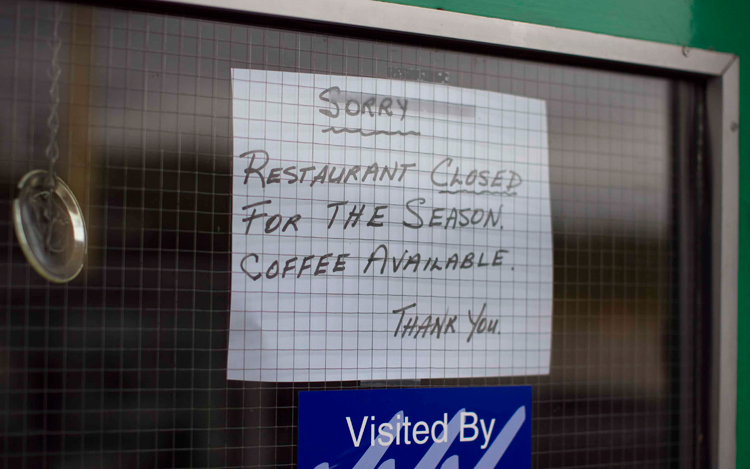 SORRY
RESTAURANT CLOSED
FOR THE SEASON.
COFFEE AVAILABLE.
THANK YOU.
Visited By